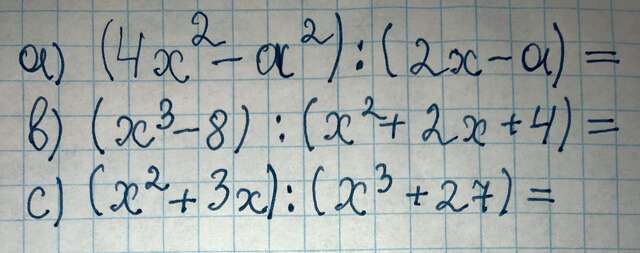 a) (4x² - a²) : (2x - a) =
b) (x³ - 8) : (x² + 2x + 4) =
c) (x² + 3x) : (x³ + 27) =